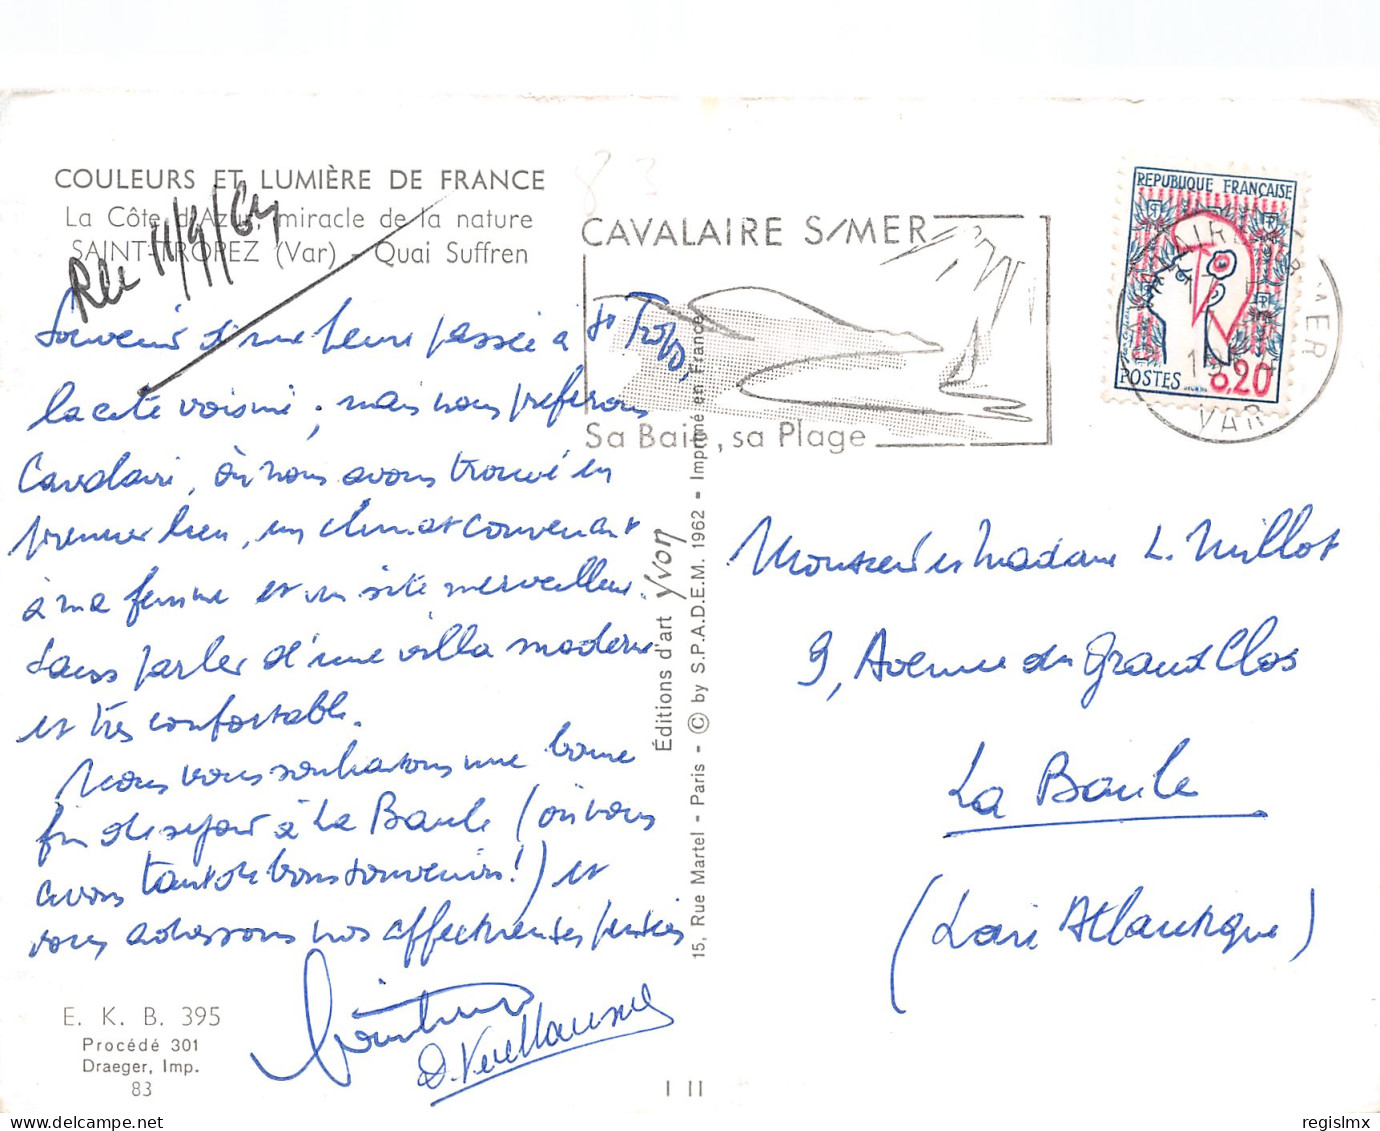 COULEURS ET LUMIÈRE DE FRANCE
La Côte d'Azur, miracle de la nature
SAINT-TROPEZ (Var) - Quai Suffren
11/9/64
83
Souvenir d'une heure passée à St Trop,
la cité voisine ; mais nous préférons
Cavalaire, où nous avons trouvé en
premier lieu, un climat convenant
à ma femme et un site merveilleux.
Sans parler d'une villa moderne
et très confortable.
Nous vous souhaitons une bonne
fin de séjour à La Baule (où nous
avons tant de bons souvenirs !) et
vous adressons nos affectueuses pensées
E. K. B. 395
Procédé 301
Draeger, Imp.
83
Editions d'art Yvon
15, Rue Martel - Paris - © by S.P.A.D.E.M. 1962 - Imprimé en France
I II
CAVALAIRE S/MER
Sa Baie, sa Plage
REPUBLIQUE FRANÇAISE
POSTES
0,20
VAR
Monsieur et Madame L. Millot
9, Avenue du Grand Clos
La Baule
(Loire Atlantique)
regislmx